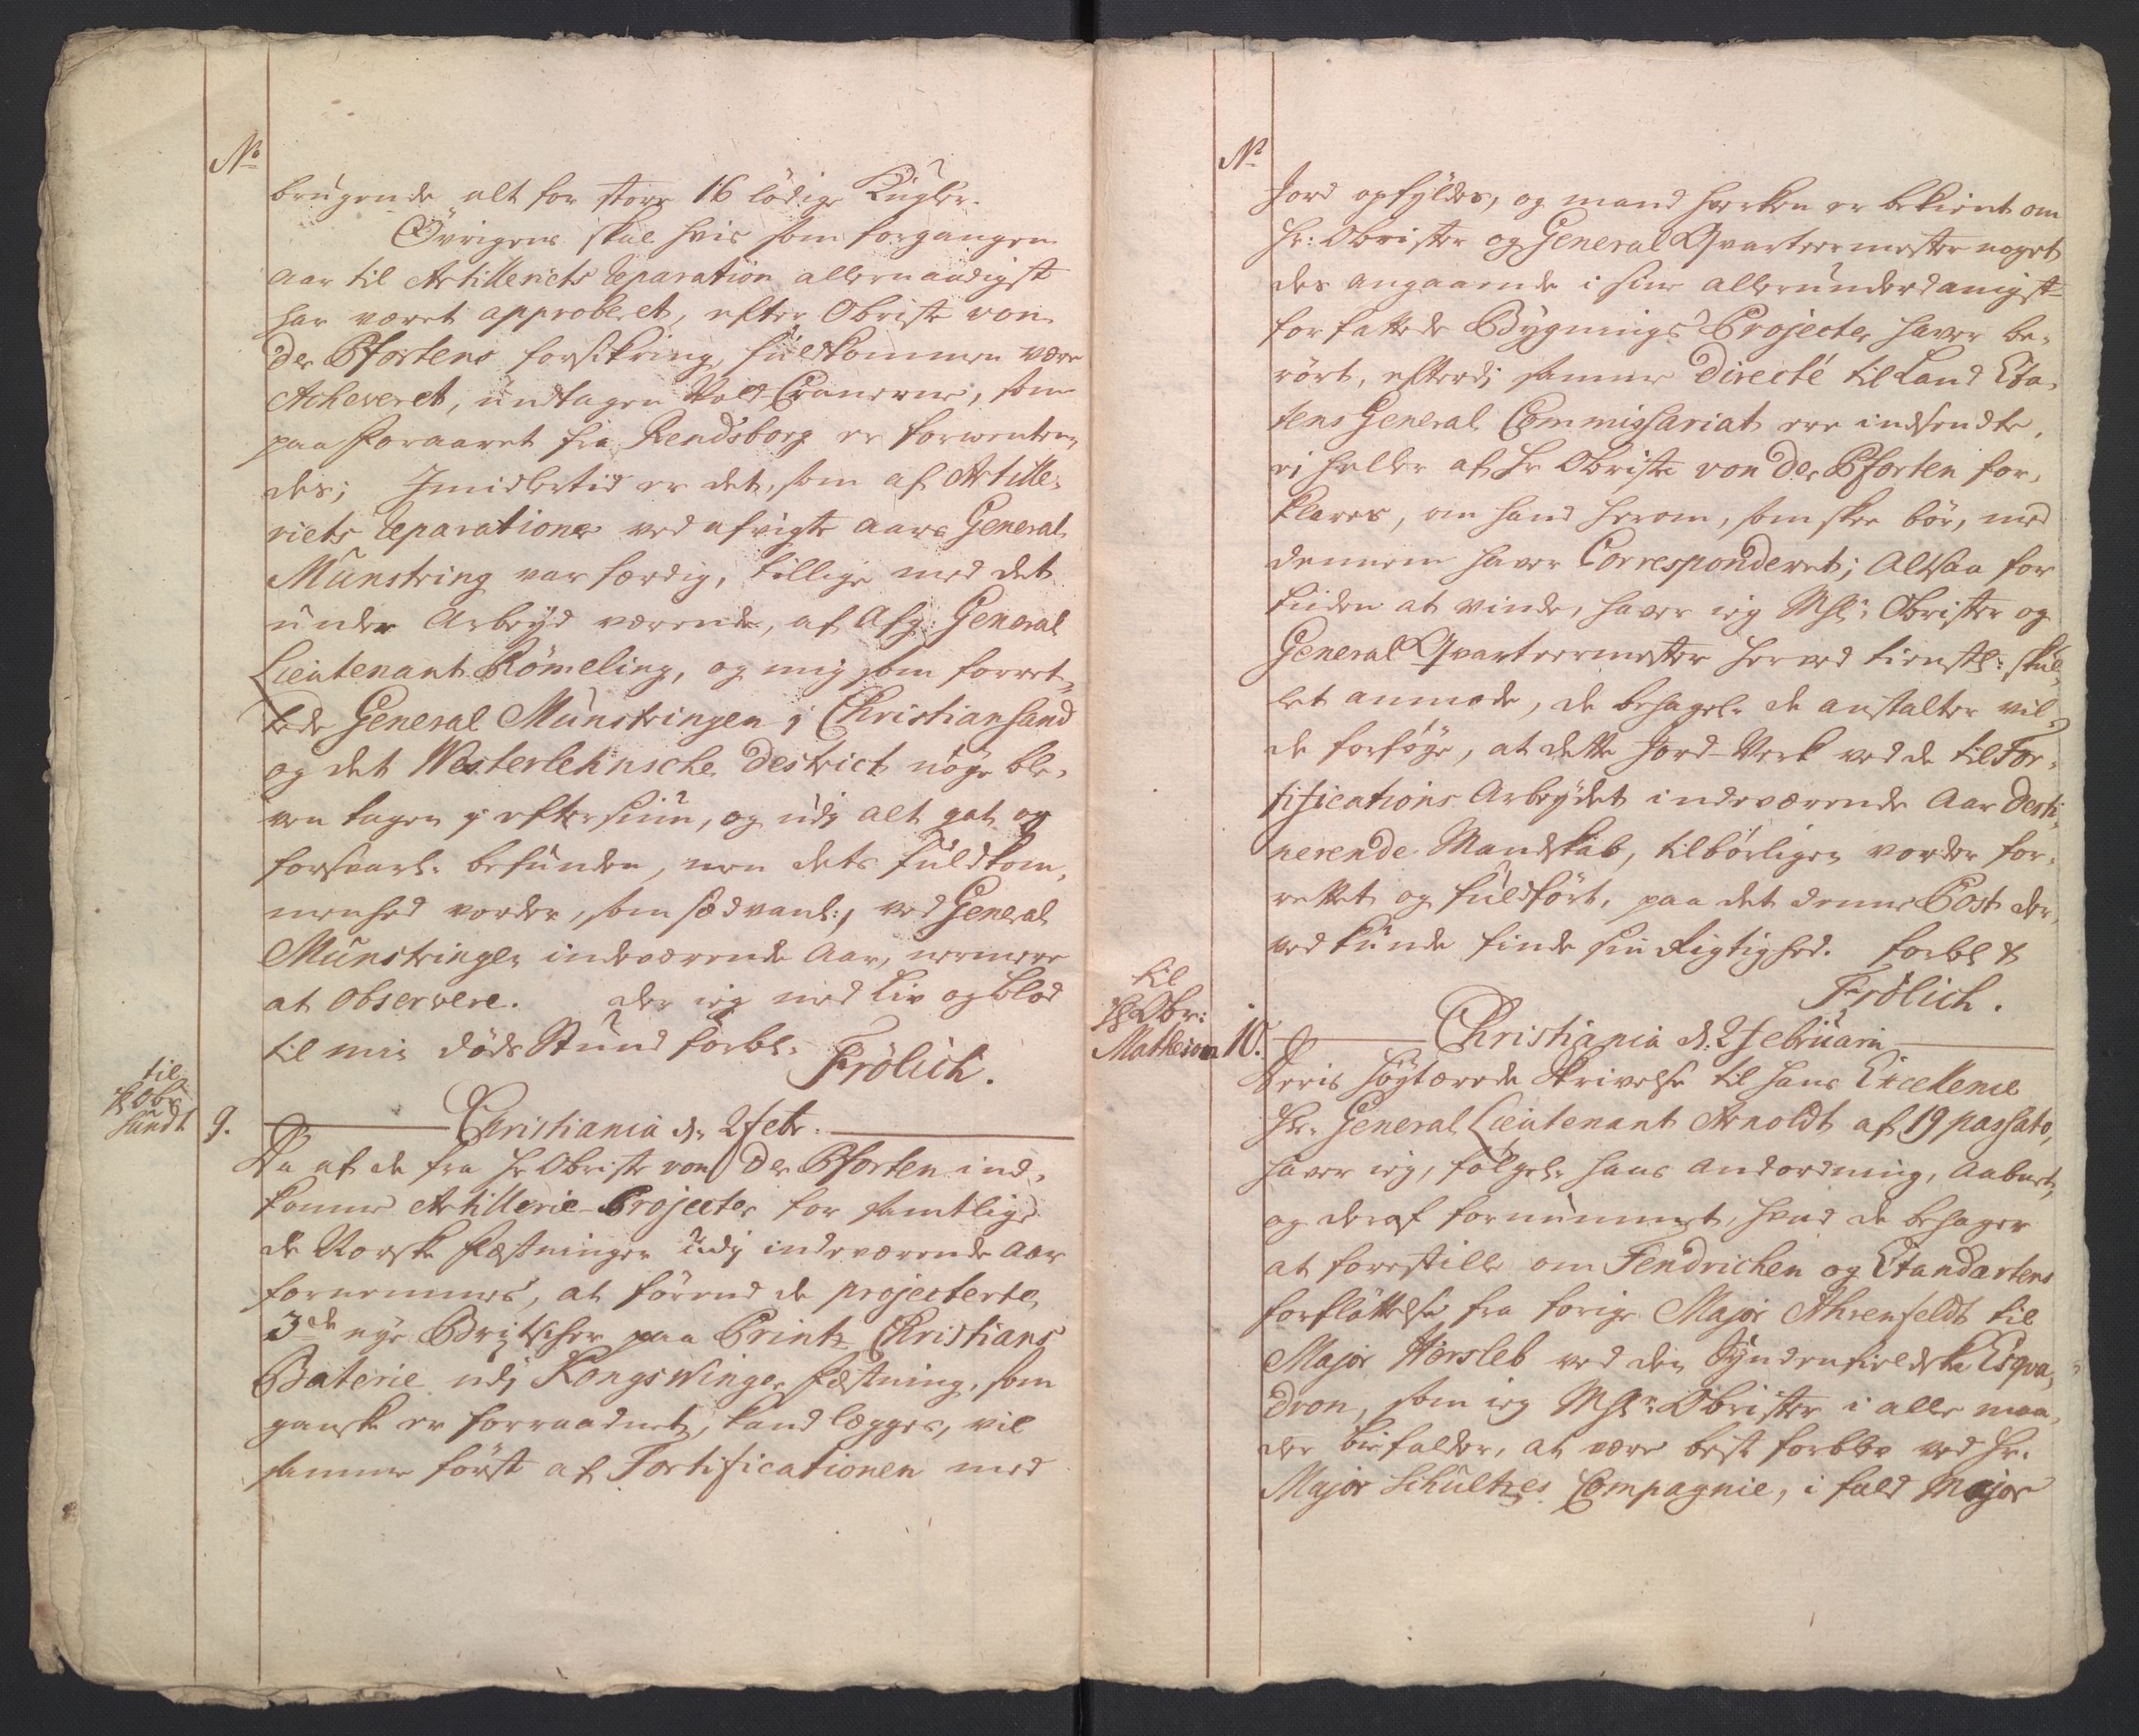 No
brugende alt for store 16 lödige Kugler.
Övrigens skal hvis som forgangen
aar til Artilleriets Reparation allernaadigst
har været approberet, efter Obriste von
der Pfortens forsikring, fuldkommen være
Acheveret, undtagen Vold Cranerne, som
paa Foraaret fra Rendsborg er forwenten,
des; Imidlertid er det, som af Artille,
riets Reparationer ved afvigte aars General
Munstring var færdig, tillige med det
under Arbeyd værende, af Afg: General
Lieutenant Römeling, og mig som forret,
tede General Munstringen i Christiansand
og det Westerlehnsche District nöye ble,
ven tagen i eftersiun, og udj alt gat og
forsvarl: befunden, men dets fuldkom,
menhed vorder, som sædvanl:, ved General
Munstringen indeværende Aar, nermere
at observere. der ieg med Liv og Blod
til min döds Stund forbl:
Frölich.
til
H Obr
Sundt
9. Christiania d: 2 Febr.
Da af de fra Hr Obriste von Der Pforten ind,
komne Artillerie-Projecter for samtlige
de Norske Fæstninger udj indeværende Aar
fornemmes, at förend de projecterte
3de nye Britscher paa Printz Christians
Baterie udj Kongswinger Fæstning, som
ganske er forraadnet, kand lægges, vil
samme först af Fortificationen med
No
Jord opfyldes, og mand hverken er bekient om
Hr: Obrister og General Qvarteermester noget
des angaaende i sine allerunderdanigst
forfattede Bygnings Projecter haver be,
rört, efterdj samme Directé til Land Eta,
tens General Commissariat ere indsendte,
ej heller af Hr Obriste von Der Pforten for,
klares, om hand herom, som skee bör, med
dennem haver Corresponderet; Altsaa for
tiiden at vinde, haver ieg Mhl: Obrister og
General Qvarteermester herved tienstl: skul,
let anmode, de behagel: de anstalter vil,
de forföye, at dette Jord-Verk ved de til For,
tifications Arbeydet indeværende Aar desti,
nerende Mandskab, tilbörligen vorder for,
rettet og fuldfört, paa det denne Post der,
ved kunde finde sin Rigtighed. forbl &
Frölich.
til
H Obr:
Matheson
10. Christiania d: 2 Februarii
Deris höytærede Skrivelse til hans Excellence
Hr: General Lieutenant Arnoldt af 19 passato,
haver ieg, fölgel: hans Andordning, aabnet,
og deraf fornummet, hvad de behager
at forestille om Fendrichen og Etandartens
forflöttelse fra forige Major Ahrenfeldt til
Major Horsleb ved den Syndenfieldske Esqva,
dron, som ieg Mhl: Obrister i alle maa,
der biefalder, at være best forblev ved Hr.
Major Schultzes Compagnie, i fald Major